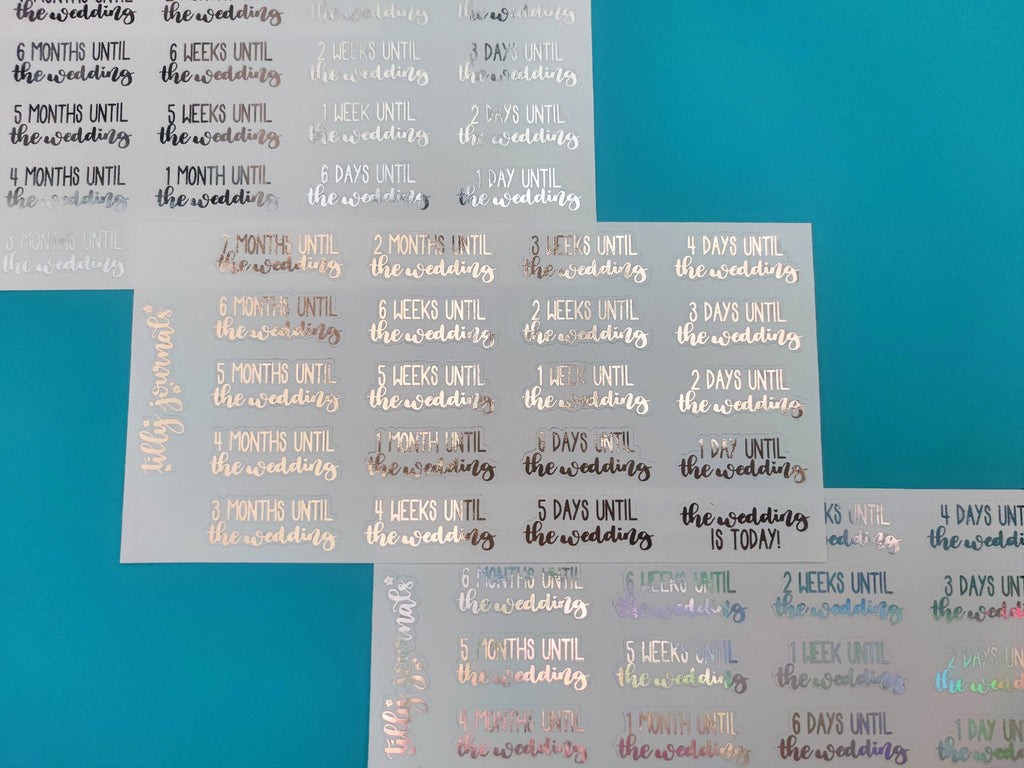 MONTHS UNTIL
the wedding
MONTHS UNTIL
the wedding
the wedding
the wedding
6 MONTHS UNTIL
the wedding
6 WEEKS UNTIL
the wedding
2 WEEKS UNTIL
the wedding
3 DAYS UNTIL
the wedding
5 MONTHS UNTIL
the wedding
5 WEEKS UNTIL
the wedding
1 WEEK UNTIL
the wedding
2 DAYS UNTIL
the wedding
4 MONTHS UNTIL
the wedding
1 MONTH UNTIL
the wedding
6 DAYS UNTIL
the wedding
1 DAY UNTIL
the wedding
3 MONTHS UNTIL
the wedding
tilly journals
7 MONTHS UNTIL
the wedding
2 MONTHS UNTIL
the wedding
3 WEEKS UNTIL
the wedding
4 DAYS UNTIL
the wedding
6 MONTHS UNTIL
the wedding
6 WEEKS UNTIL
the wedding
2 WEEKS UNTIL
the wedding
3 DAYS UNTIL
the wedding
5 MONTHS UNTIL
the wedding
5 WEEKS UNTIL
the wedding
1 WEEK UNTIL
the wedding
2 DAYS UNTIL
the wedding
4 MONTHS UNTIL
the wedding
1 MONTH UNTIL
the wedding
6 DAYS UNTIL
the wedding
1 DAY UNTIL
the wedding
3 MONTHS UNTIL
the wedding
4 WEEKS UNTIL
the wedding
5 DAYS UNTIL
the wedding
the wedding
IS TODAY!
tilly journals
KS UNTIL
wedding
4 DAYS UNT
the wedd
6 MONTHS UNTIL
the wedding
6 WEEKS UNTIL
the wedding
2 WEEKS UNTIL
the wedding
3 DAYS UN
the wedd
5 MONTHS UNTIL
the wedding
5 WEEKS UNTIL
the wedding
1 WEEK UNTIL
the wedding
2 DAYS UN
the wedd
4 MONTHS UNTIL
the wedding
1 MONTH UNTIL
the wedding
6 DAYS UNTIL
the wedding
1 DAY UN
the wedd